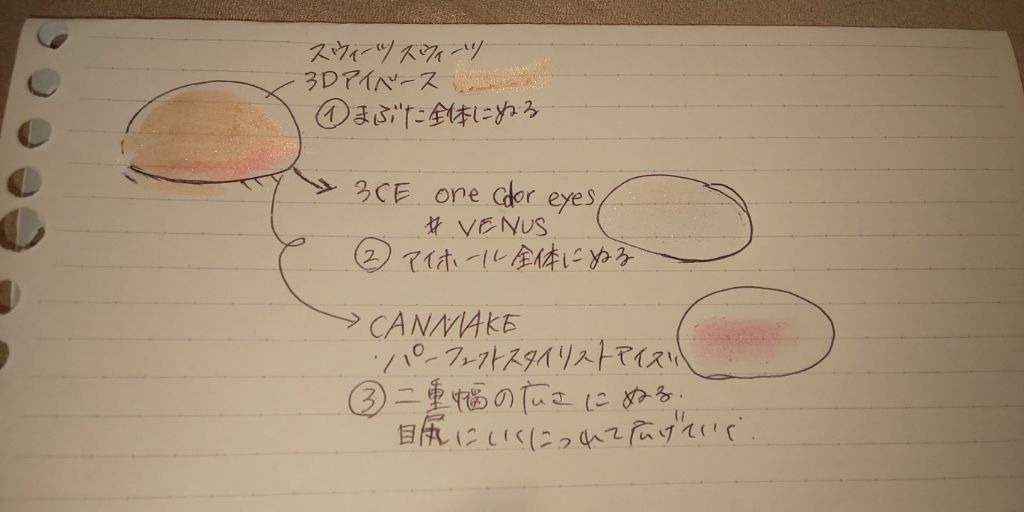 スウィーツスウィーツ
3Dアイベース
①まぶた全体にぬる
3CE one color eyes
# VENUS
②アイホール全体にぬる
CANMAKE
パーフェクトスタイリストアイズ
③二重幅の広さにぬる.
目尻にいくにつれて広げていく.